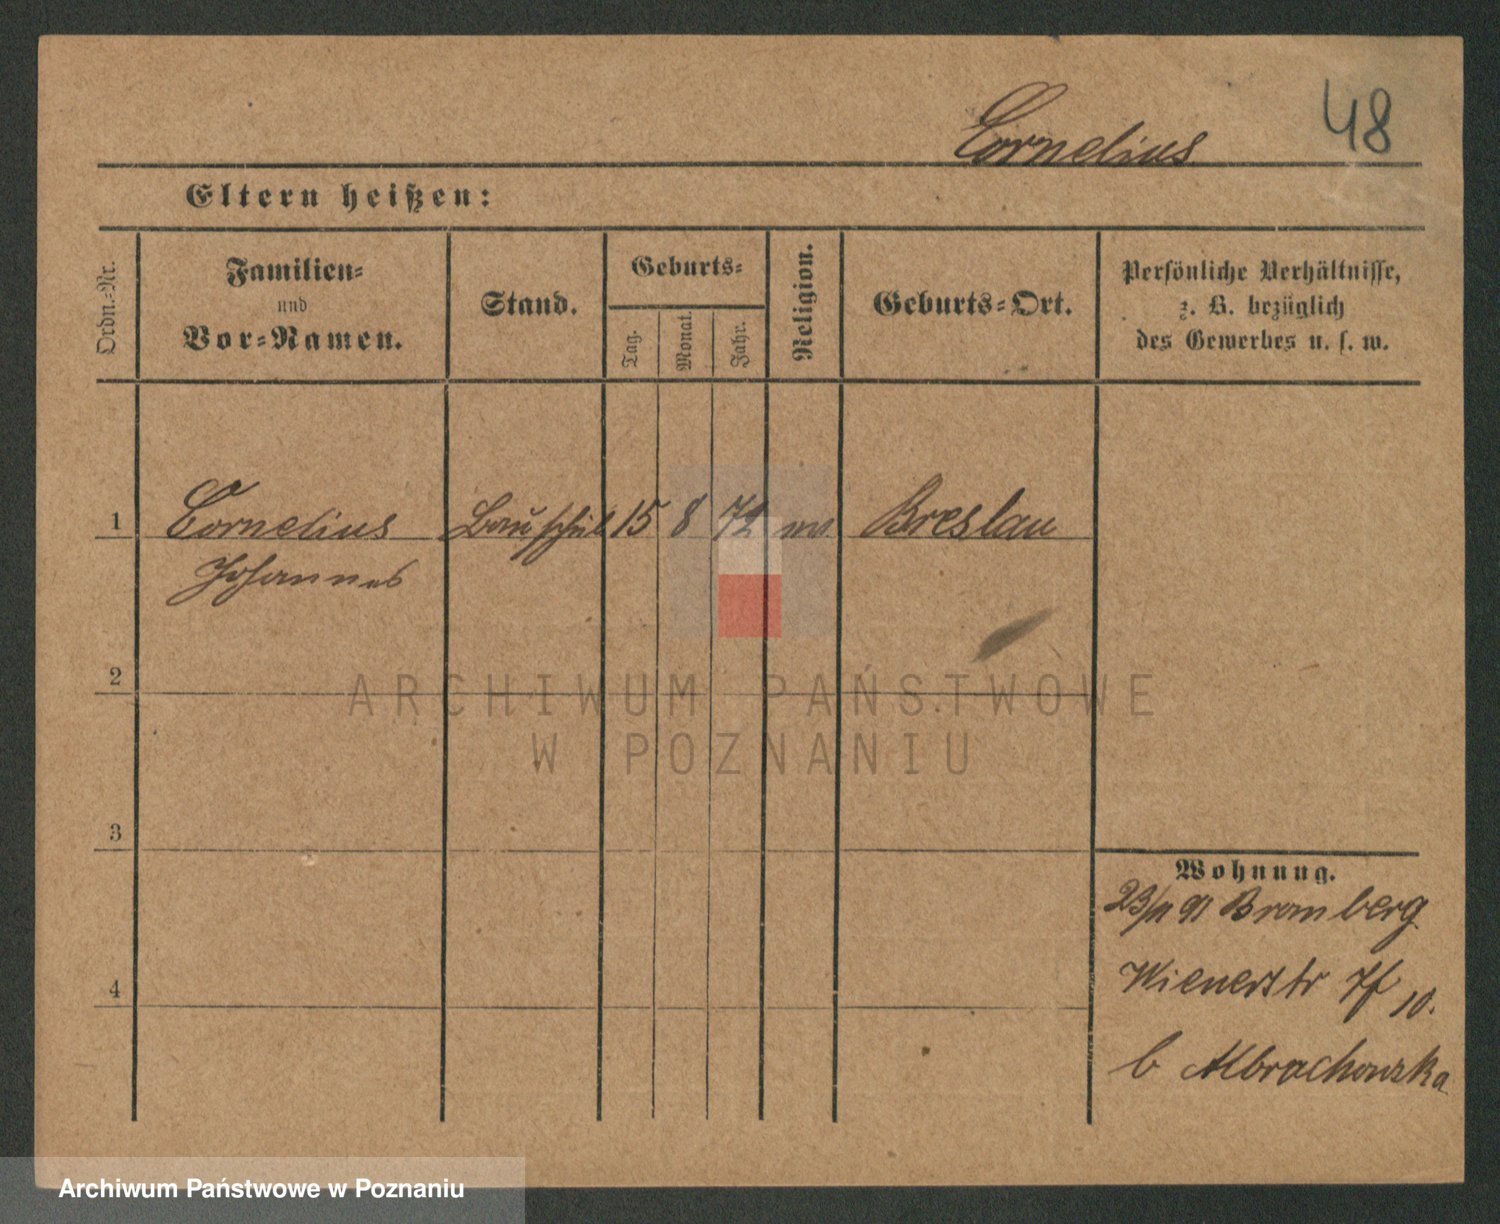 48
Cornelius
Eltern heißen:
Ordn.-Nr.
Familien-
und
Vor-Namen.
Stand.
Geburts-
Tag.
Monat.
Jahr.
Religion.
Geburts-Ort.
Persönliche Verhältnisse,
z. B. bezüglich
des Gewerbes u. s. w.
1 Cornelius Bauschül 15 8 72 Breslau
Johannes
2
ARCHIWUM PAŃSTWOWE
W POZNANIU
3
Wohnung.
91 Bromberg
4
Wienerstr 10.
b
Archiwum Państwowe w Poznaniu